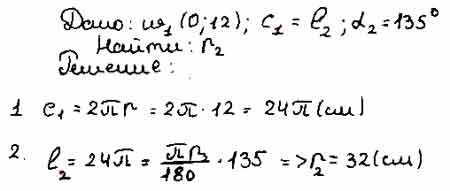 Дано: ω₁ (0; 12); C₁ = ℓ₂; α₂ = 135°
Найти: r₂
Решение:
1 C₁ = 2πr = 2π · 12 = 24π (см)
2. ℓ₂ = 24π = πr₂/180 · 135 => r₂ = 32 (см)